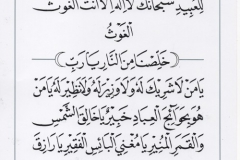 للعبيد سبحانك لا اله الا انت الغوث
الغوث
خلصنا من النار يا رب
يا من لا شريك له ولا وزير له ولا نظير له يا من
هو بحوائج العباد خبير يا خالق الشمس
والقمر المنير يا مغني البائس الفقير يا رازق